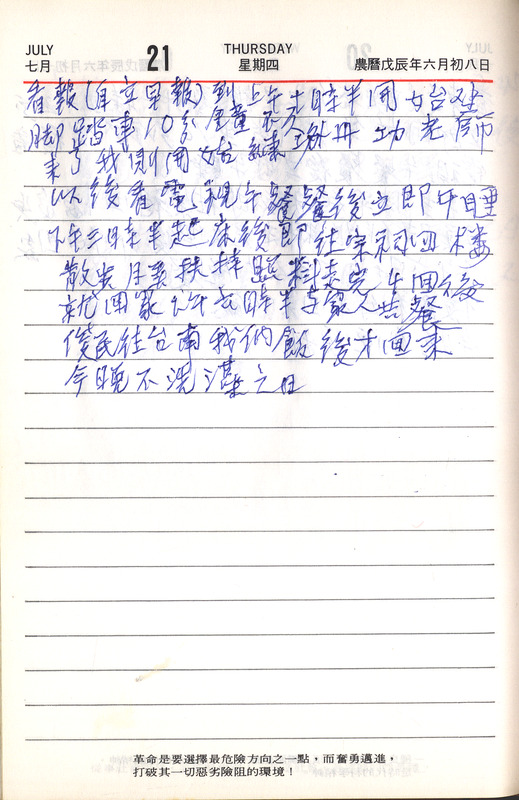 JULY 21 THURSDAY
七月 星期四 農曆戊辰年六月初八日
看報(自立早報)到上午十時半開始硬
腳踏車10分鐘不久
來了我則開始練功老師
以後看電視午餐餐後立即午睡
下午三時半起床後即往宗祠四樓
散步 扶持照料走完牛回後
就回家下午六時半與家人共餐
俊民往台南我們飯後才回來
今晚不洗澡之日
革命是要選擇最危險方向之一點,而奮勇邁進,
打破其一切惡劣險阻的環境!